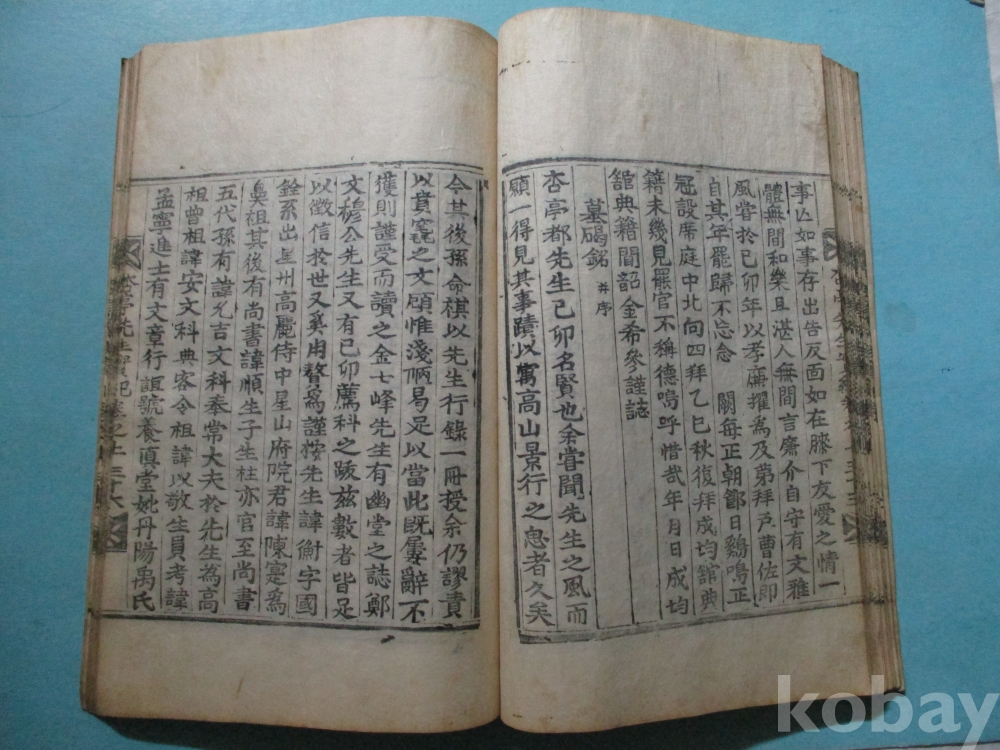 事亾如事存出告反面如在膝下友愛之情一
體無間和樂且湛人無間言齋介自守有文雅
風嘗於己卯年以孝廉擢爲及第拜戶曹佐郎
自其年罷歸不忘念 闕每正朝節日鷄鳴正
冠設席庭中北向四拜乙巳秋復拜成均舘典
籍未幾見罷官不稱德嗚呼惜哉年月日成均
舘典籍聞韶金希參謹誌
墓碣銘 幷序
杏亭都先生己卯名賢也余嘗聞先生之風而
願一得見其事蹟以寓高山景行之思者久矣
今其後孫命祺以先生行錄一冊授余仍謬責
以賁竁之文顧惟淺陋易足以當此旣屢辭不
獲則謹受而讀之金七峰先生有幽堂之誌鄭
文穆公先生又有己卯薦科之跋玆數者皆足
以徵信於世又奚用贅爲謹按先生諱衡字國
銓系出星州高麗侍中星山府院君諱陳寔爲
鼻祖其後有尚書諱順生子生柱亦官至尚書
五代孫有諱允吉文科奉常大夫於先生為高
祖曾祖諱安文科典客令祖諱以敬生員考諱
孟寧進士有文章行誼號養眞堂妣丹陽禹氏
杏亭先生實紀 卷之上 三十六
kobay